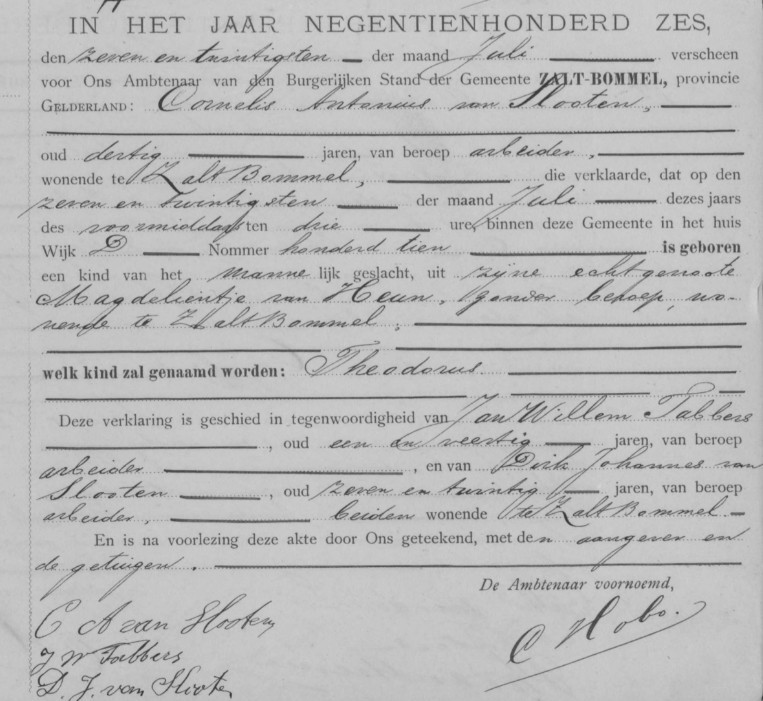 IN HET JAAR NEGENTIENHONDERD ZES,
den zeven en twintigsten der maand Juli verscheen
voor Ons Ambtenaar van den Burgerlijken Stand der Gemeente ZALT-BOMMEL, provincie
GELDERLAND: Cornelis Antonius van Slooten,
oud dertig jaren, van beroep arbeider,
wonende te Zalt Bommel, die verklaarde, dat op den
zeven en twintigsten der maand Juli dezes jaars
des voormiddags ten drie ure, binnen deze Gemeente in het huis
Wijk D Nommer honderd tien is geboren
een kind van het mannelijk geslacht, uit zijne echtgenoote
Magdelientje van Heun, zonder beroep, wo-
nende te Zalt Bommel,
welk kind zal genaamd worden: Theodorus.
Deze verklaring is geschied in tegenwoordigheid van Jan Willem Tabbers
, oud een en veertig jaren, van beroep
arbeider, en van Dirk Johannes van
Slooten, oud zeven en twintig jaren, van beroep
arbeider, beiden wonende te Zalt Bommel
En is na voorlezing deze akte door Ons geteekend, met den aangever en
de getuigen.
De Ambtenaar voornoemd,
C A van Slooten
J W Tabbers
C Hobo.
D. J. van Slooten